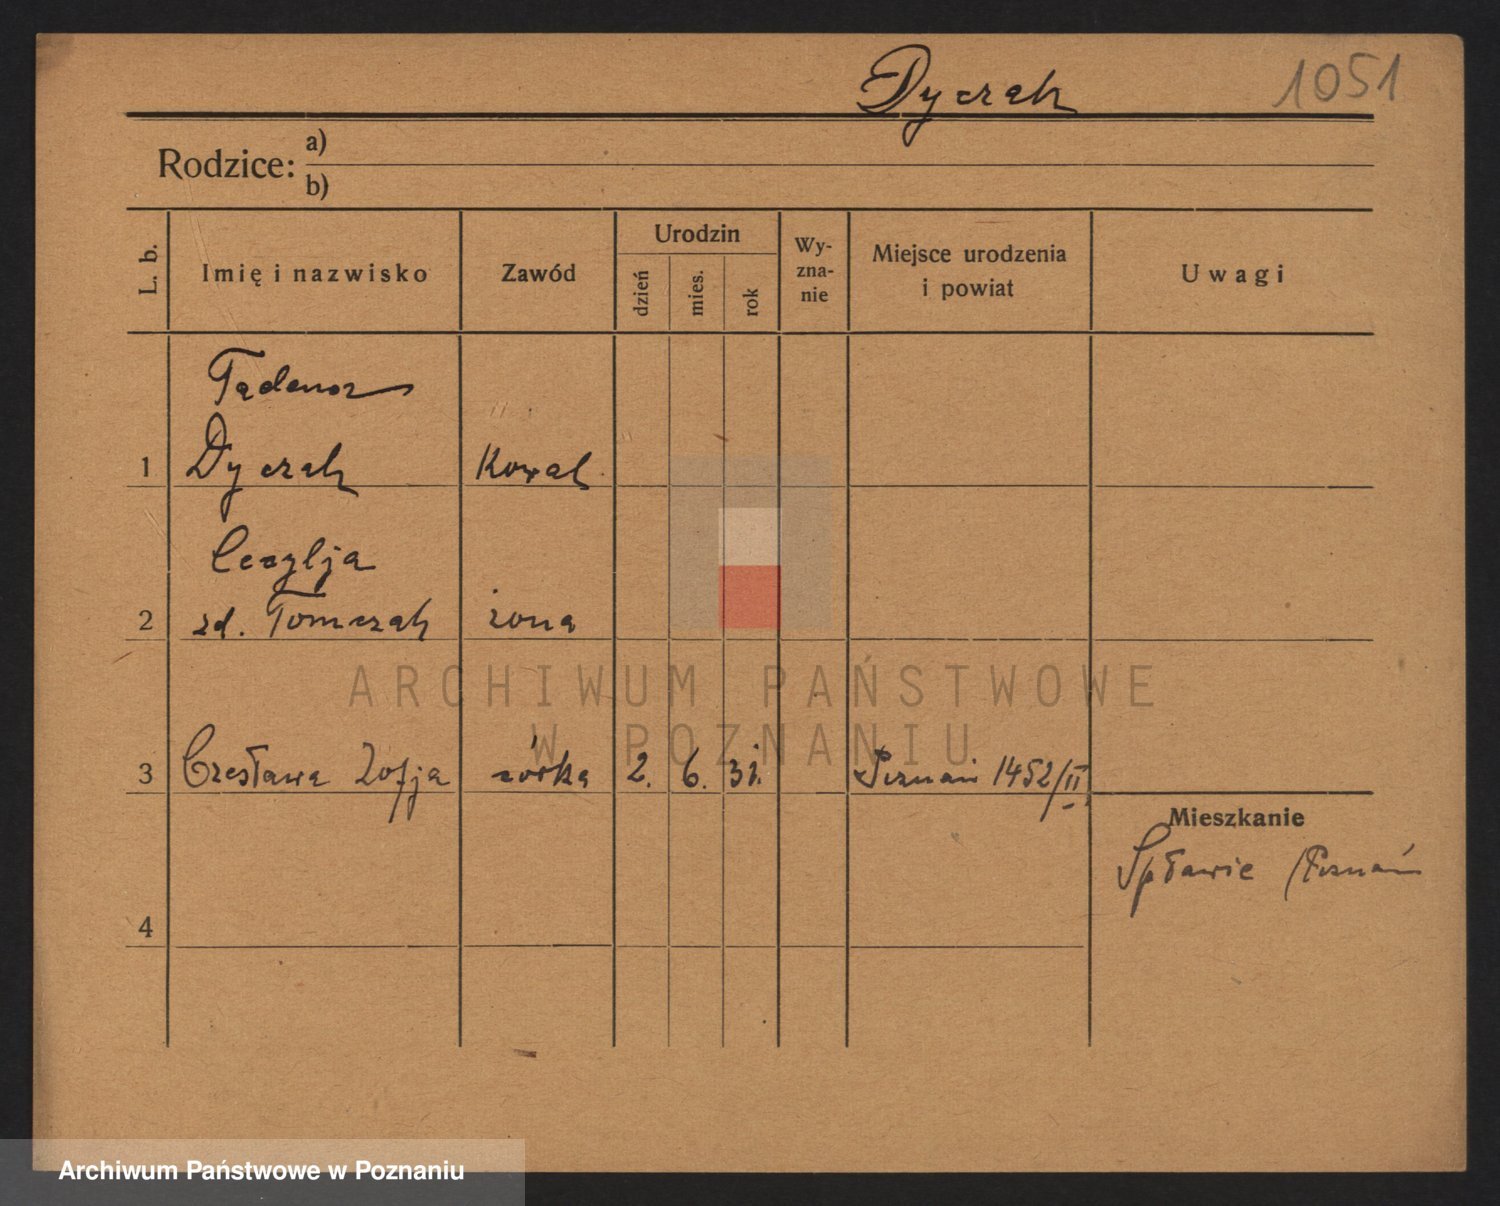 Dyczak 1051
Rodzice: a)
b)
L. b. Imię i nazwisko Zawód Urodzin dzień mies. rok Wy-
zna-
nie Miejsce urodzenia
i powiat Uwagi
Tadeusz
1 Dyczak Kowal
Cecylja
2 zd. Tomczak żona
ARCHIWUM PAŃSTWOWE
W POZNANIU
3 Czesława Zofja córka 2. 6. 31. Poznań 1452/II
Mieszkanie
Spławie /Poznań
4
Archiwum Państwowe w Poznaniu